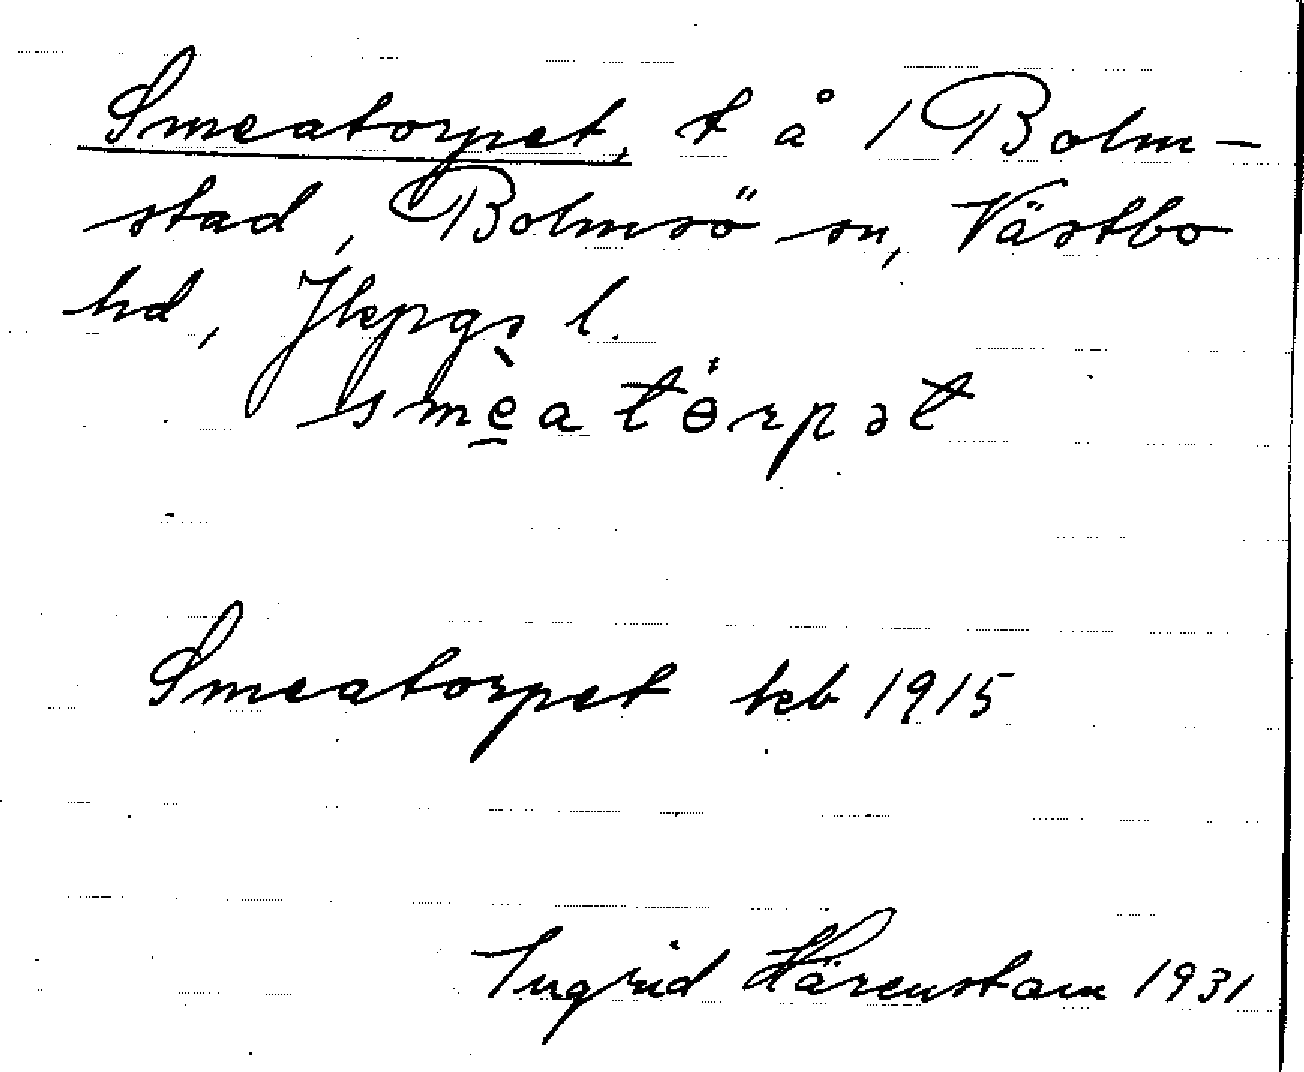 Smeatorpet, t å 1 Bolm-
stad, Bolmsö sn, Västbo
hd, Jkpgs l.
smè̱atɵ́rpət
Smeatorpet kb 1915
Ingrid Härenstam 1931